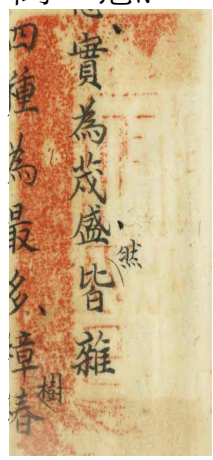 實為茂盛、然皆雜
四種為最多、樟樹春